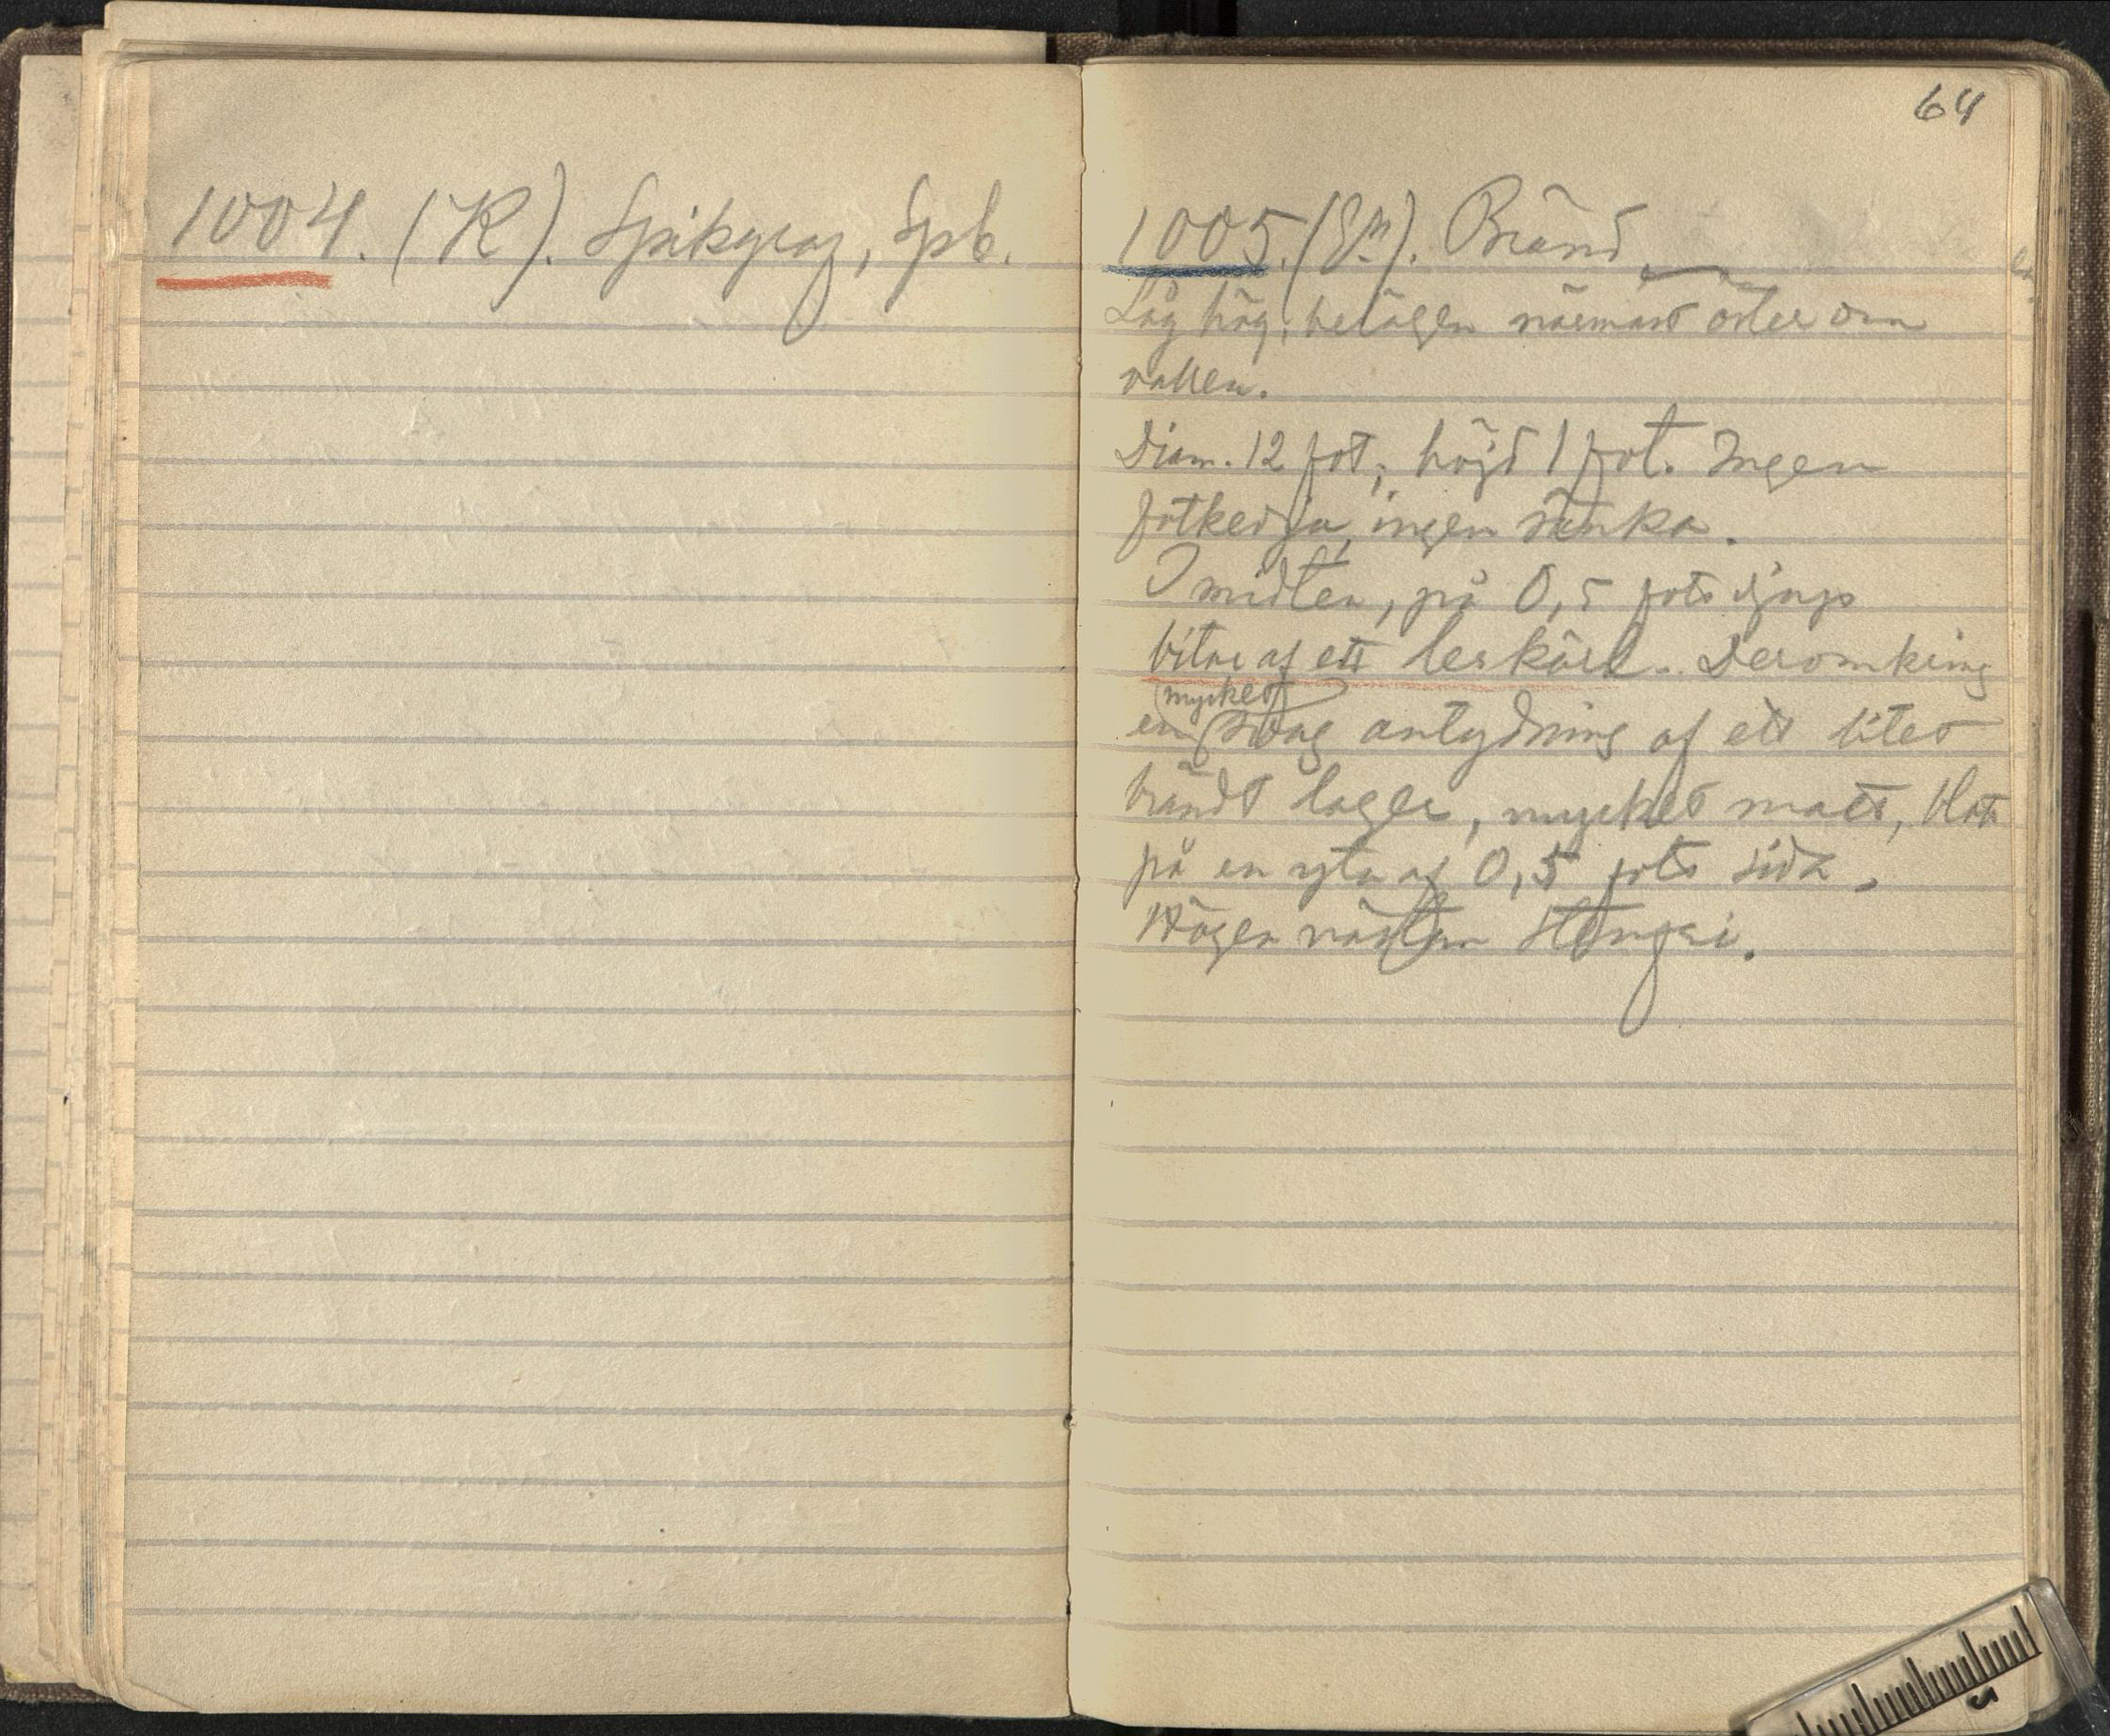 1004. (K). Spikgraf, Spb.
64
1005. (En). Bränd
Låg hög, belägen närmast öster om
vallen.
Diam. 12 fot; höjd 1 fot. Ingen
fotkedja, ingen sänka.
I midten, på 0,5 fots djup
bitar af ett lerkärl. Deromkring
mycket
en svag antydning af ett litet
brändt lager, mycket matt, blott
på en yta af 0,5 fots sida.
Högen nästan stenfri.